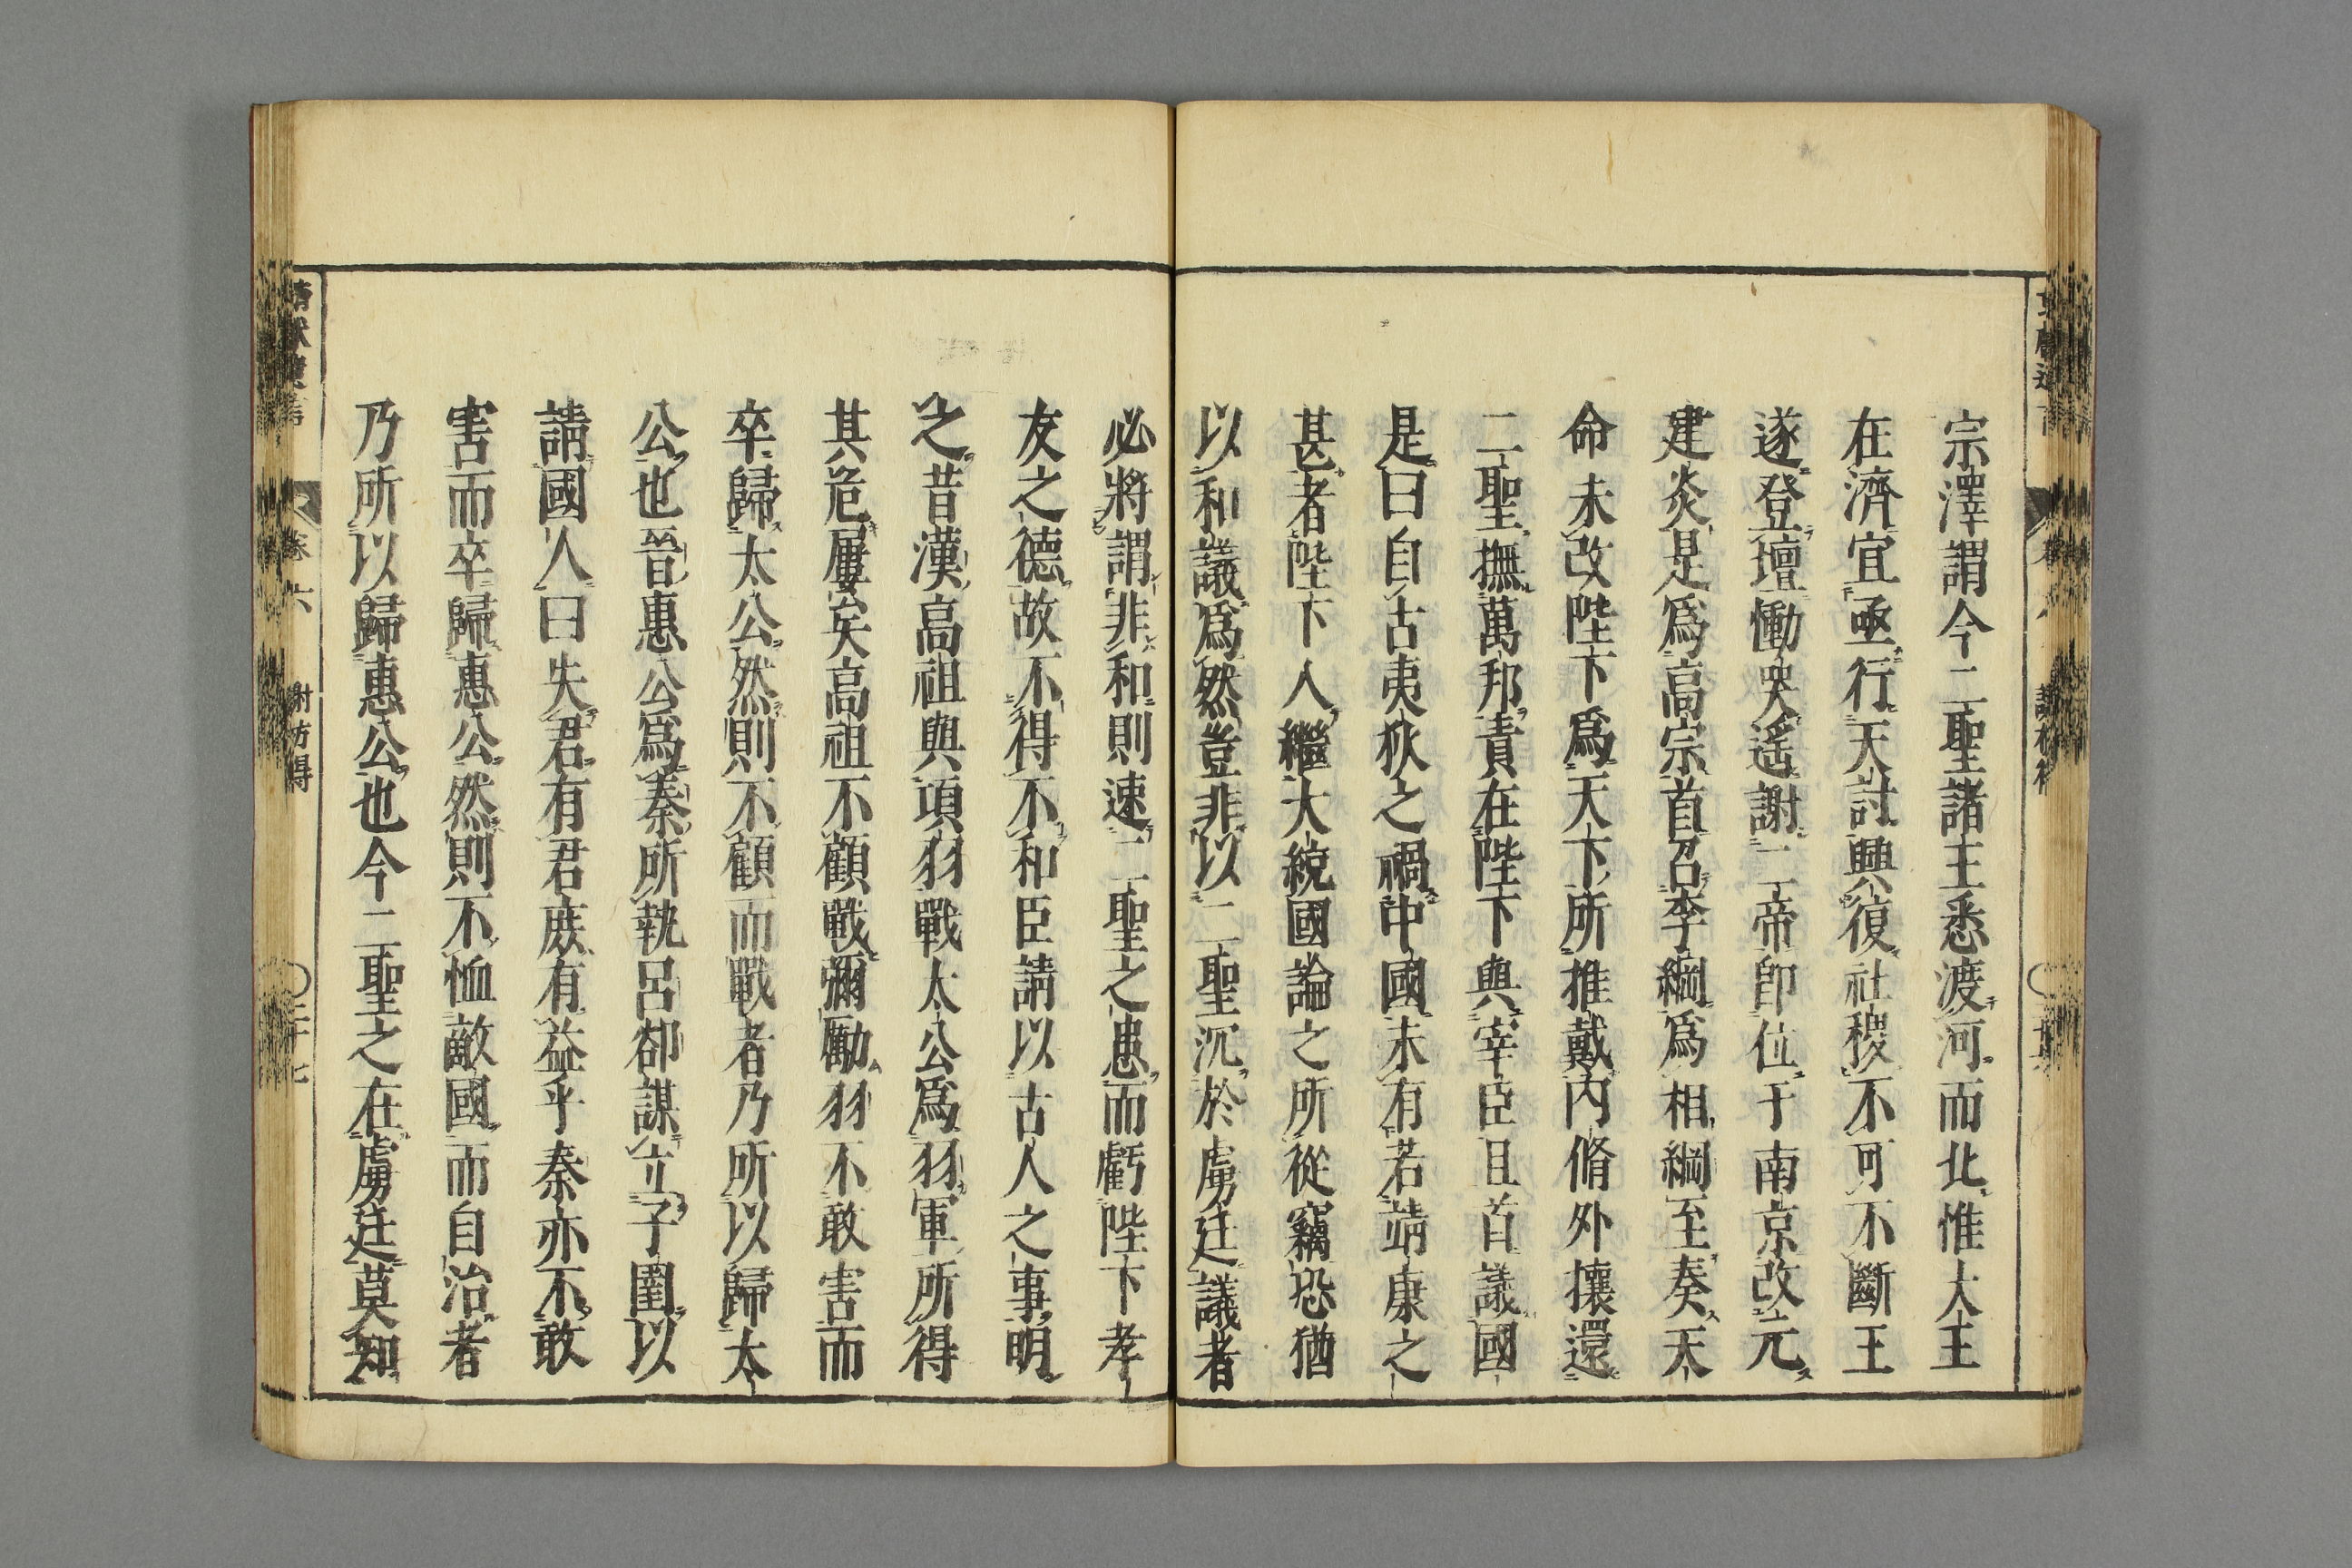 宗澤謂今二聖諸王悉渡河而北惟大王
在濟宜亟行天討興復社稷不可不斷王
遂登壇慟哭遥謝二帝卽位于南京改元
建炎是爲高宗首召李綱爲相綱至奏天
命未改陛下爲天下所推戴內脩外攘還
二聖撫萬邦責在陛下與宰臣且首議國
是曰自古夷狄之禍中國未有若靖康之
甚者陛下入繼大統國論之所從竊恐猶
以和議爲然豈非以二聖沉於虜廷議者
必將謂非和則速二聖之患而虧陛下孝
友之德故不得不和臣請以古人之事明
之昔漢高祖與項羽戰太公爲羽軍所得
其危屢矣高祖不顧戰彌勵羽不敢害而
卒歸太公然則不顧而戰者乃所以歸太
公也晉惠公爲秦所執呂郤謀立子圉以
請國人曰失君有君庶有益乎秦亦不敢
害而卒歸惠公然則不恤敵國而自治者
乃所以歸惠公也今二聖之在虜廷莫知
卷六
謝枋得
三十七